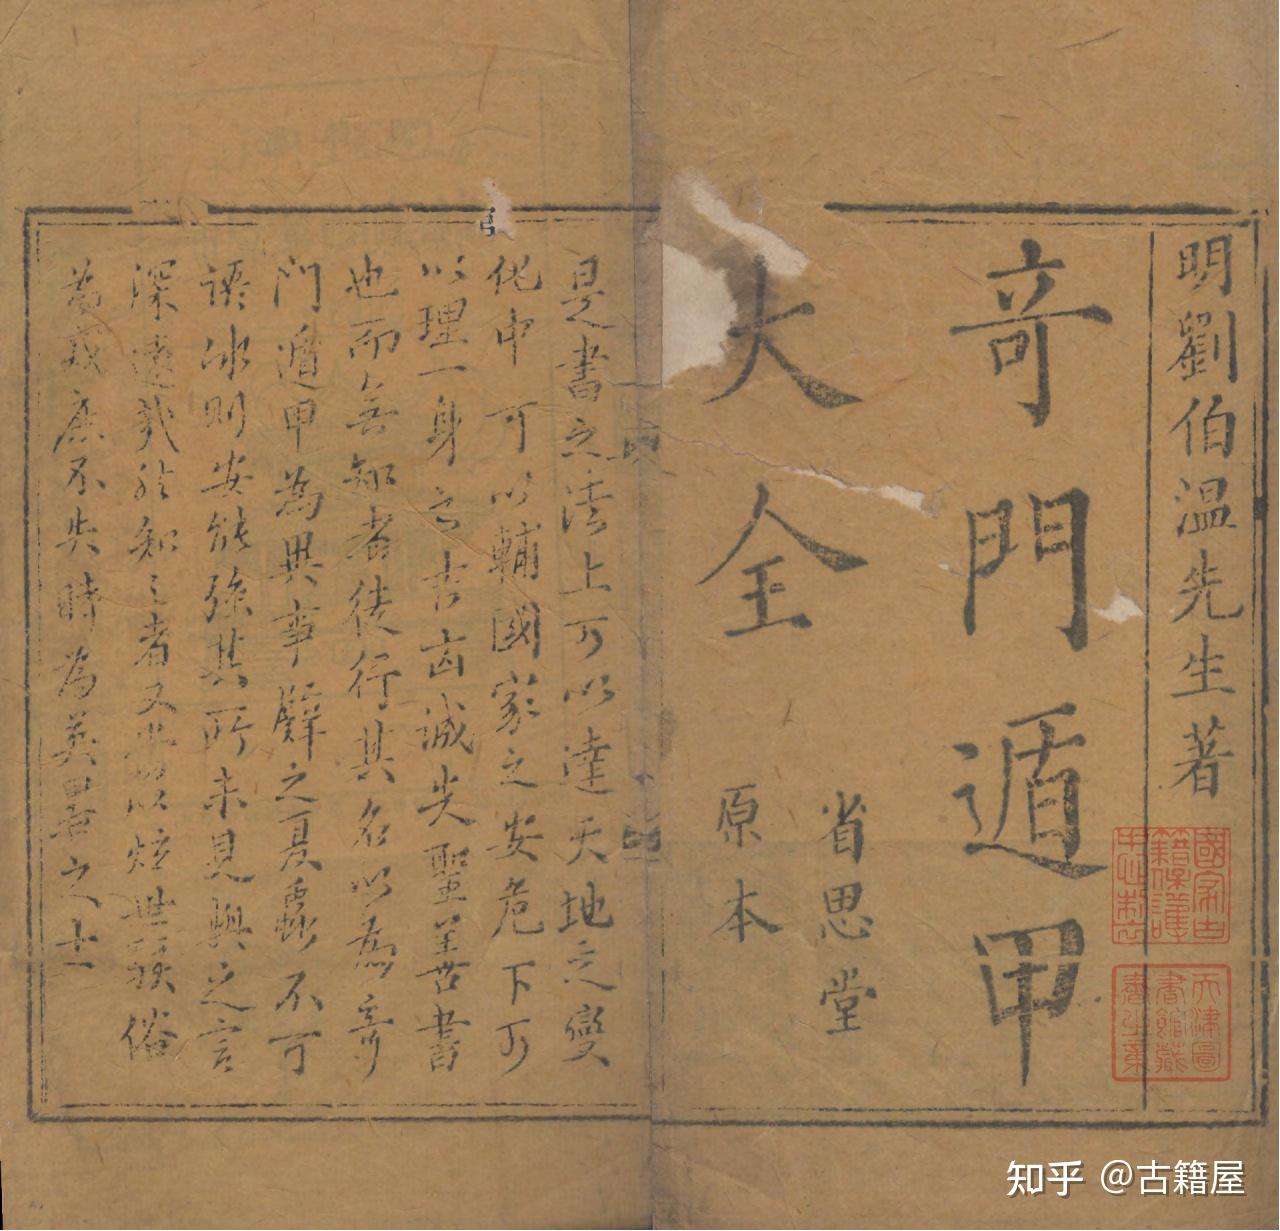 明劉伯温先生著
竒門遁甲
大全
省思堂
原本
國家古
籍保護
天津圖
書館藏
是書之法上可以達天地之變
化中可以輔國家之安危下可
以理一身之吉凶誠失聖善書
也而無知者徒行其名以為竒
門遁甲為異事譬之夏蟲不可
語冰則安能強其所未見與之言
深遠哉於知之者又以炫世駭俗
為哉庶不失時為英畧之士
知乎 @古籍屋